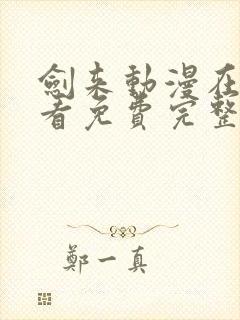 劍來動漫在
看免費完整
鄭一真